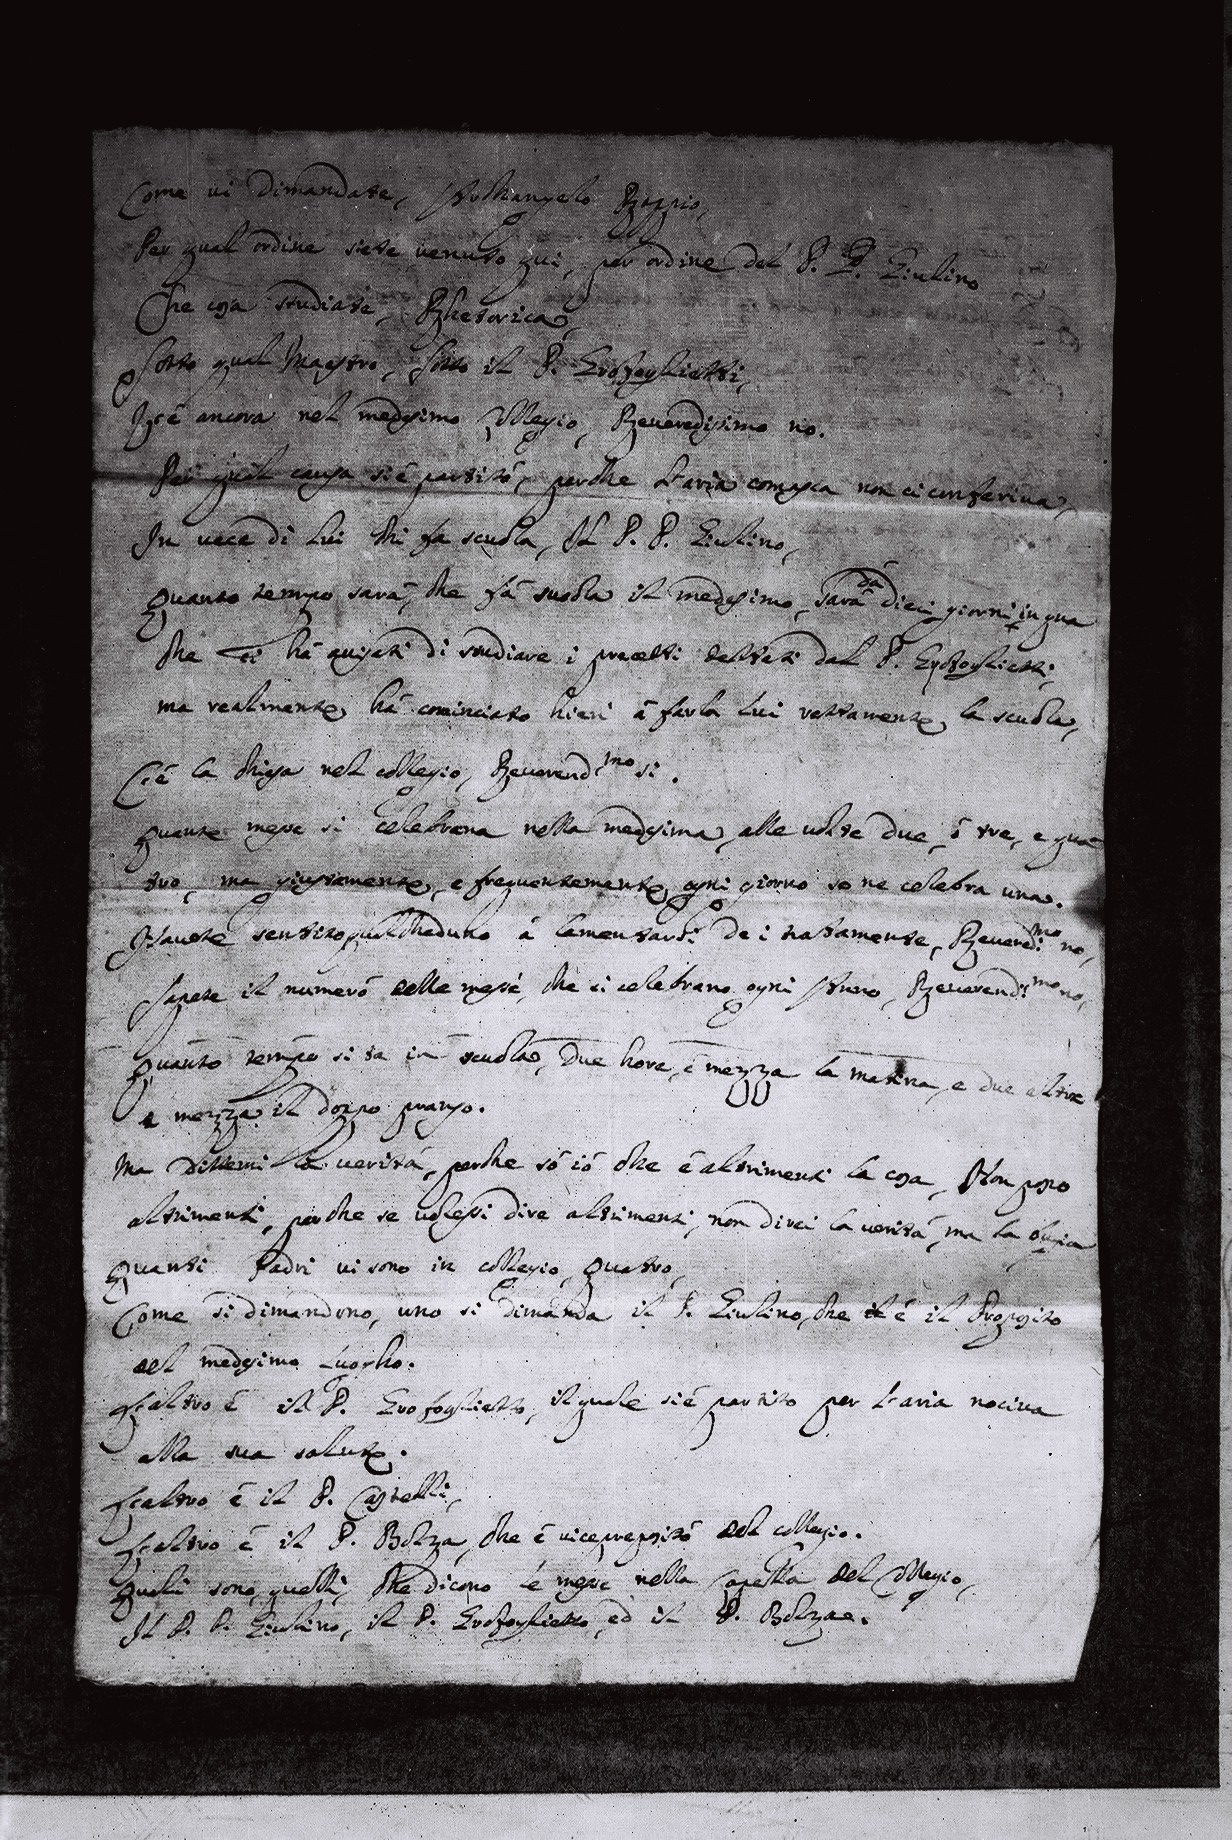 Come vi dimandate, Archangelo Boppio,
Per qual ordine siete venuto qui, per ordine del P. P. Giulino
Che cosa studiate, Rhetorica,
Sotto qual Maestro, sotto il P. Grofoglietti,
Ivi é ancora nel medesimo Collegio, Reveredissimo no.
Per qual causa si é partitó, perche l'aria comasca non ci conferiva,
In vece di lui chi fa scuola, Il P. P. Giulino,
Quanto tempo sará, che fá scuola il medesimo, sará dá dieci giorni in qua
che ci há avisati di studiare i precetti dettati dal P. Grofoglietti,
ma realmente há cominciato hieri á farla lui rettamente la scuola,
C'é la chiesa nel collegio, Reverend.mo si.
Quante messe si celebrana nella medesima, alle volte due, ó tre, e qua
tro, ma giustamente, e frequentemente ogni giorno se ne celebra una.
Havete sentito qualcheduno á lamentarsi de i trattamente, Reveredi.mo no,
Sapete il numeró delle messé, che ci celebrano ogni Anno, Reverendi.mo no,
Quanto tempo si sta in scuola, Due hore, é mezza la matina, e due altre
e mezza il doppo pranso.
Ma dittemi la veritá, perche só ió che é altrimenti la cosa, Non posso
altrimenti, perche se volessi dire altrimenti, non direi la veritá, ma la busia
Quanti Padri vi sono in collegio, quatro,
Come si dimandono, uno si dimanda il P. Giulino, che é il Preposito
del medesimo Luogho.
L'altro é il P. Grofoglietto, il quale si é partito per l'aria nociva
alla sua salute.
L'altro é il P. Castelli,
L'altro é il P. Bolza, che é viceprepositó del collegio.
Quali sono quelli, che dicono le messe nella Capella del Collegio,
Il P. P. Giulino, il P. Grofoglietto, ed il P. Bolzae.